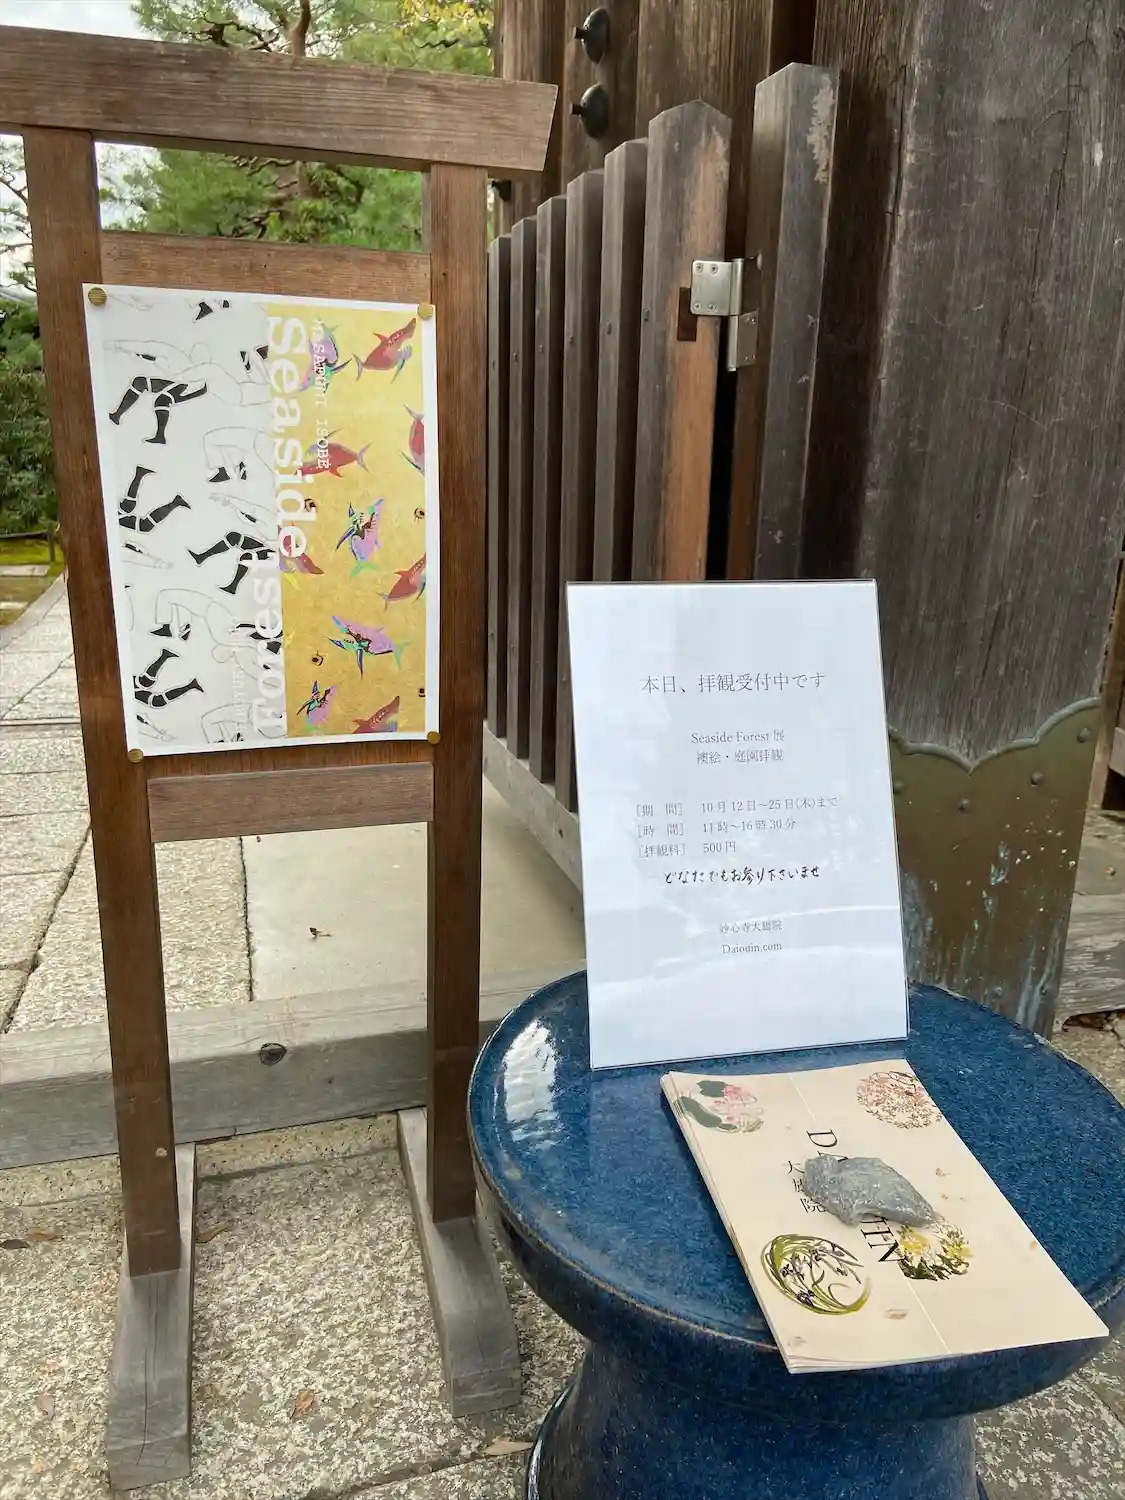 MASAFUMI ISOBE
Seaside
本日、拝観受付中です
Seaside Forest 展
襖絵・庭園拝観
[期 間] 10月12日～25日(木)まで
[時 間] 11時～16時30分
[拝観料] 500円
どなたでもお参り下さいませ
妙心寺大雄院
Daiouin.com
大雄院